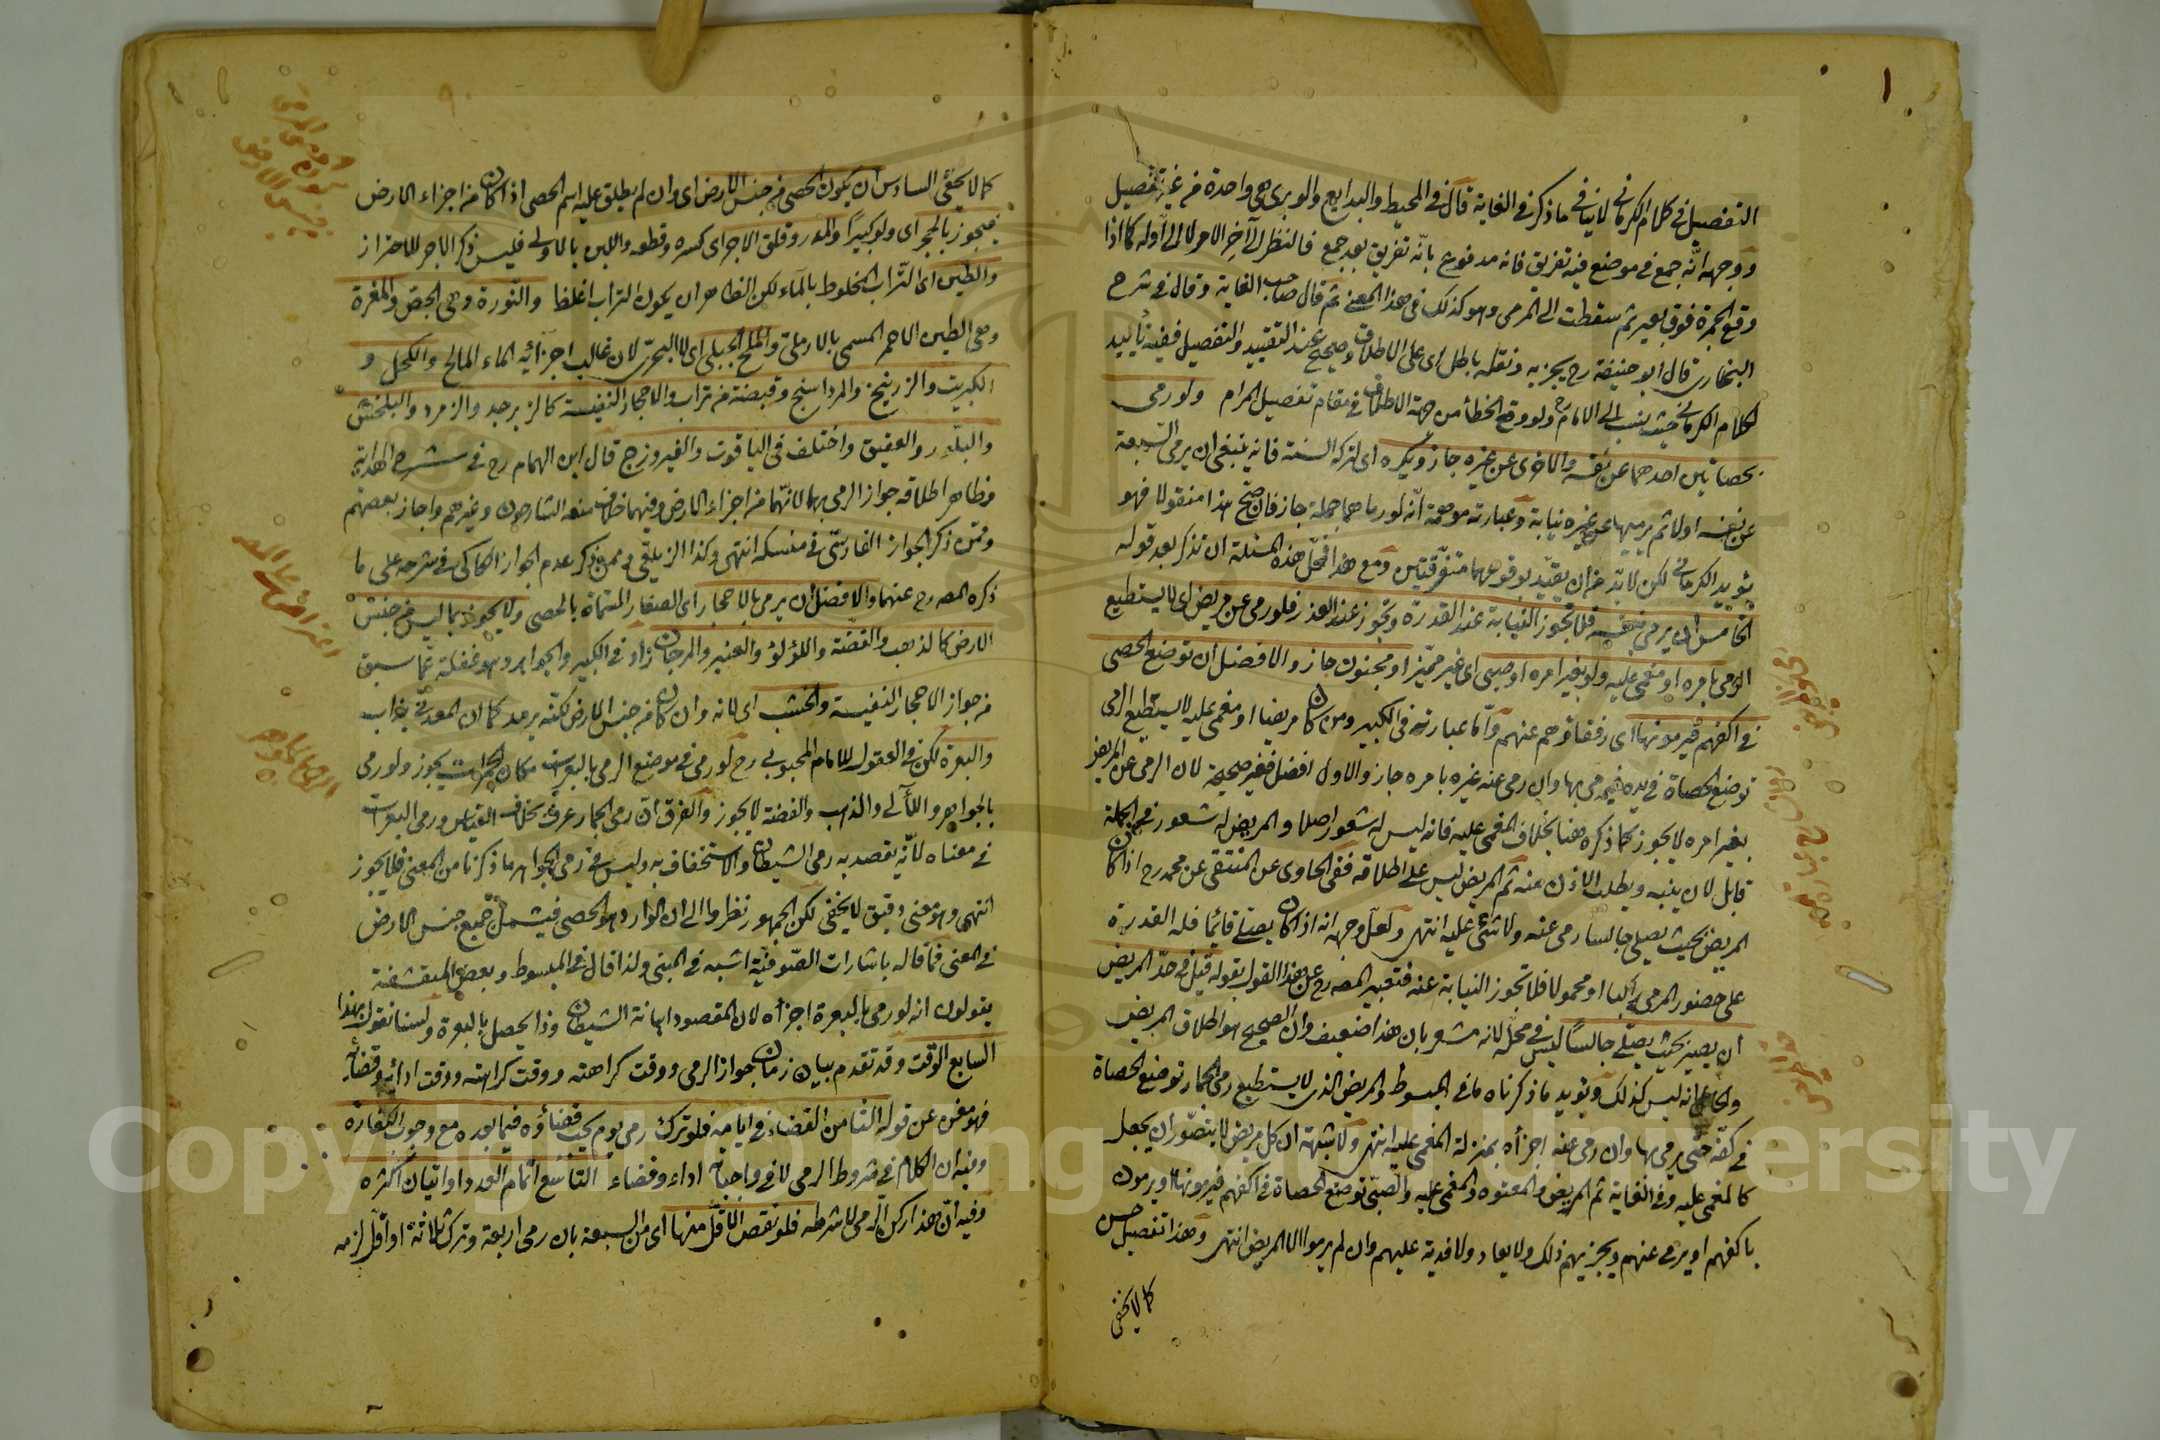 التفصيل في كلام الكرماني لا ينافي ما ذكر في الغاية قال في المحيط والبدايع والوبري هي واحدة من غير تفصيل
ووجهه انه جمع في موضع فيه تفريق فانه مدفوع بانه تفريق بعد جمع فالنظر الى آخر الامر لا الى اوله كما اذا
وقع الجمرة فوق بعير ثم سقطت الى المرمى وهو كذلك في هذا المعنى ثم قال صاحب الغاية وقال في شرح
البخاري قال ابو حنيفة رح يجزيه ونقله باطل اى على الاطلاق وصحيح عند التقييد والتفصيل ففيه تأييد
لكلام الكرماني حيث ينسب الى الامام رح ولو وقع الخطأ من جهة الاطلاق في مقام تفصيل المرام ولو رمى
بحصاتين احدهما عن نفسه والاخرى عن غيره جاز ويكره اى لتركه السنة فانه ينبغي ان يرمي السبعة
عن نفسه اولا ثم يرميها عن غيره نيابة وعبارته موهمة انه لو رماهما جملة جاز فان صح هذا منقولا فهو
يؤيد الكرماني لكن لا بد من ان يقيد بوقوعهما متفرقتين ومع هذا فمحل هذه المسئلة ان تذكر بعد قوله
الخامس ان يرمي بنفسه فلا تجوز النيابة عند القدرة وتجوز عند العذر فلو رمى عن مريض اى لا يستطيع
الرمى بامره او مغمى عليه ولو بغير امره او صبي اى غير مميز او مجنون جاز والافضل ان توضع الحصى
في اكفهم فيرمونها اى رفقاؤهم عنهم واما عبارته في الكبير ومن كان مريضا او مغمى عليه لا يستطيع الرمى
توضع الحصاة في يده فيرمى بها وان رمى عنه غيره بامره جاز والاول افضل فغير صحيحة لان الرمى عن المريض
بغير امره لا يجوز كما ذكره هنا بخلاف المغمى عليه فانه ليس له شعور اصلا والمريض له شعور في الجملة
قابل لان ينبه ويطلب الاذن منه ثم المريض ليس على اطلاقه ففي الحاوي عن المنتقى عن محمد رح اذا كان
المريض بحيث يصلي جالسا رمى عنه ولا شئ عليه انتهى ولعل وجهه انه اذا كان يصلي قائما فله القدرة
على حضور المرمى راكبا او محمولا فلا تجوز النيابة عنه فتعبير المص رح عن هذا القول بقوله قيل في حد المريض
ان يصير بحيث يصلي جالسا ليس في محله لانه مشعر بان هذا ضعيف وان الصحيح هو اطلاق المريض
والحال انه ليس كذلك ويؤيد ما ذكرناه ما في المبسوط والمريض الذي لا يستطيع رمى الجمار توضع الحصاة
في كفه حتى يرمى بها وان رمى عنه اجزأه بمنزلة المغمى عليه انتهى ولا شبهة ان كل مريض لا يتصور ان يجعل
كالمغمى عليه وفي الغاية ثم المريض والمعتوه والمغمى عليه والصبي توضع الحصاة في اكفهم فيرمونها او يرمون
باكفهم او يرمى عنهم ويجزيهم ذلك ولا يعاد ولا فدية عليهم وان لم يرموا الا المريض انتهى وهذا تفصيل حسن
كما لا يخفى
كما لا يخفى السادس ان يكون الحصى من جنس الارض اى وان لم يطلق عليه اسم الحصى اذا كان من اجزاء الارض
فيجوز بالحجر اى ولو كبيرا والمدر وفلق الآجر اى كسره وقطعه واللبن بالاولى فليس ذكر الآجر للاحتراز
والطين اى التراب المخلوط بالماء لكن الظاهر ان يكون التراب اغلظ والنورة وهي الجص والمغرة
وهى الطين الاحمر المسمى بالارملي والملح الجبلي اى لا البحري لان غالب اجزائه الماء المالح والكحل و
الكبريت والزرنيخ والمرداسنج وقبضة من تراب والاحجار النفيسة كالزبرجد والزمرد والبلخش
والبلور والعقيق واختلف في الياقوت والفيروزج قال ابن الهمام رح في شرح الهداية
وظاهر اطلاقه جواز الرمى بهما لانهما من اجزاء الارض وفيهما خلاف منعه الشارحون وغيرهم واجاز بعضهم
وممن ذكر الجواز الفارسي في منسكه انتهى وكذا الزيلعي وممن ذكر عدم الجواز الكاكي في شرحه على ما
ذكره المص رح عنهما والافضل ان يرمى بالاحجار اى الصغار المسماة بالحصى ولا يجوز بما ليس من جنس
الارض كالذهب والفضة واللؤلؤ والعنبر والمرجان زاد في الكبير والجواهر وهو غفلة عما سبق
من جواز الاحجار النفيسة والخشب اى لانه وان كان من جنس الارض لكنه يرمد كما ان المعدني يذاب
والبعرة لكن في العقول للامام المحبوبي رح لو رمى في موضع الرمى بالبعرات مكان الجمرات يجوز ولو رمى
بالجواهر واللآلى والذهب والفضة لا يجوز والفرق ان رمى الجمار عرف بخلاف القياس ورمى البعرات
في معناه لانه يقصد به رمى الشيطان والاستخفاف به وليس في رمى الجواهر ما ذكرنا من المعنى فلا يجوز
انتهى وهو معنى دقيق لا يخفى لكن الجمهور نظروا الى ان الوارد هو الحصى فيشمل جميع جنس الارض
في المعنى فما قاله باشارات الصوفية اشبه في المبنى ولذا قال في المبسوط وبعض المتقشفة
يقولون انه لو رمى بالبعرة اجزأه لان المقصود اهانة الشيطان وذا يحصل بالبعرة ولسنا نقول بهذا
السابع الوقت وقد تقدم بيان زمان جواز الرمى ووقت كراهته ووقت ادائه وقضائه
فهو مغن عن قوله الثامن القضاء في ايامه فلو ترك رمى يوم يجب قضاؤه فيما بعده مع وجوب الكفارة
وفيه ان الكلام في شروط الرمى لا في واجباته اداء وقضاء التاسع اتمام العدد او اتيان اكثره
وفيه ان هذا ركن الرمى لا شرطه فلو نقص الاقل منها اى من السبعة بان رمى اربعة وترك ثلاثة او اقل لزمه
Copyright © King Saud University